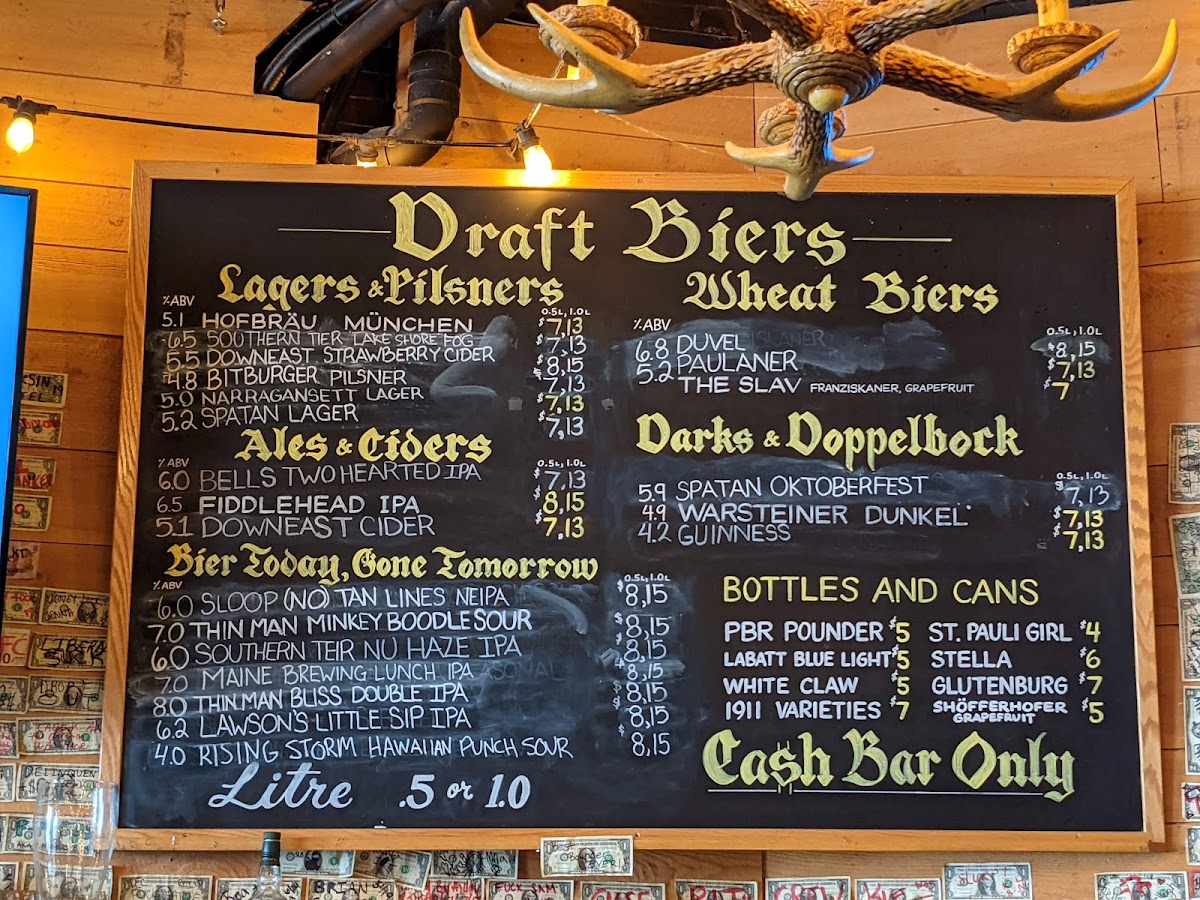 Draft Biers
Lagers & Pilsners
%ABV
0.5L, 1.0L
5.1 HOFBRÄU MÜNCHEN $7,13
6.5 SOUTHERN TIER LAKE SHORE FOG $7,13
5.5 DOWNEAST STRAWBERRY CIDER $8,15
4.8 BITBURGER PILSNER $7,13
5.0 NARRAGANSETT LAGER $7,13
5.2 SPATAN LAGER $7,13
Ales & Ciders
%ABV
0.5L, 1.0L
6.0 BELLS TWO HEARTED IPA $7,13
6.5 FIDDLEHEAD IPA $8,15
5.1 DOWNEAST CIDER $7,13
Bier Today, Gone Tomorrow
%ABV
0.5L, 1.0L
6.0 SLOOP (NO) TAN LINES NEIPA $8,15
7.0 THIN MAN MINKEY BOODLE SOUR $8,15
6.0 SOUTHERN TEIR NU HAZE IPA $8,15
7.0 MAINE BREWING LUNCH IPA $8,15
8.0 THIN MAN BLISS DOUBLE IPA $8,15
6.2 LAWSON'S LITTLE SIP IPA $8,15
4.0 RISING STORM HAWAIIAN PUNCH SOUR $8,15
Litre .5 or 1.0
Wheat Biers
%ABV
0.5L, 1.0L
6.8 DUVEL $8,15
5.2 PAULANER $7,13
THE SLAV FRANZISKANER, GRAPEFRUIT $7
Darks & Doppelbock
0.5L, 1.0L
5.9 SPATAN OKTOBERFEST $7,13
4.9 WARSTEINER DUNKEL $7,13
4.2 GUINNESS $7,13
BOTTLES AND CANS
PBR POUNDER $5 ST. PAULI GIRL $4
LABATT BLUE LIGHT $5 STELLA $6
WHITE CLAW $5 GLUTENBURG $7
1911 VARIETIES $7 SHÖFFERHOFER GRAPEFRUIT $5
Cash Bar Only
BRIAN